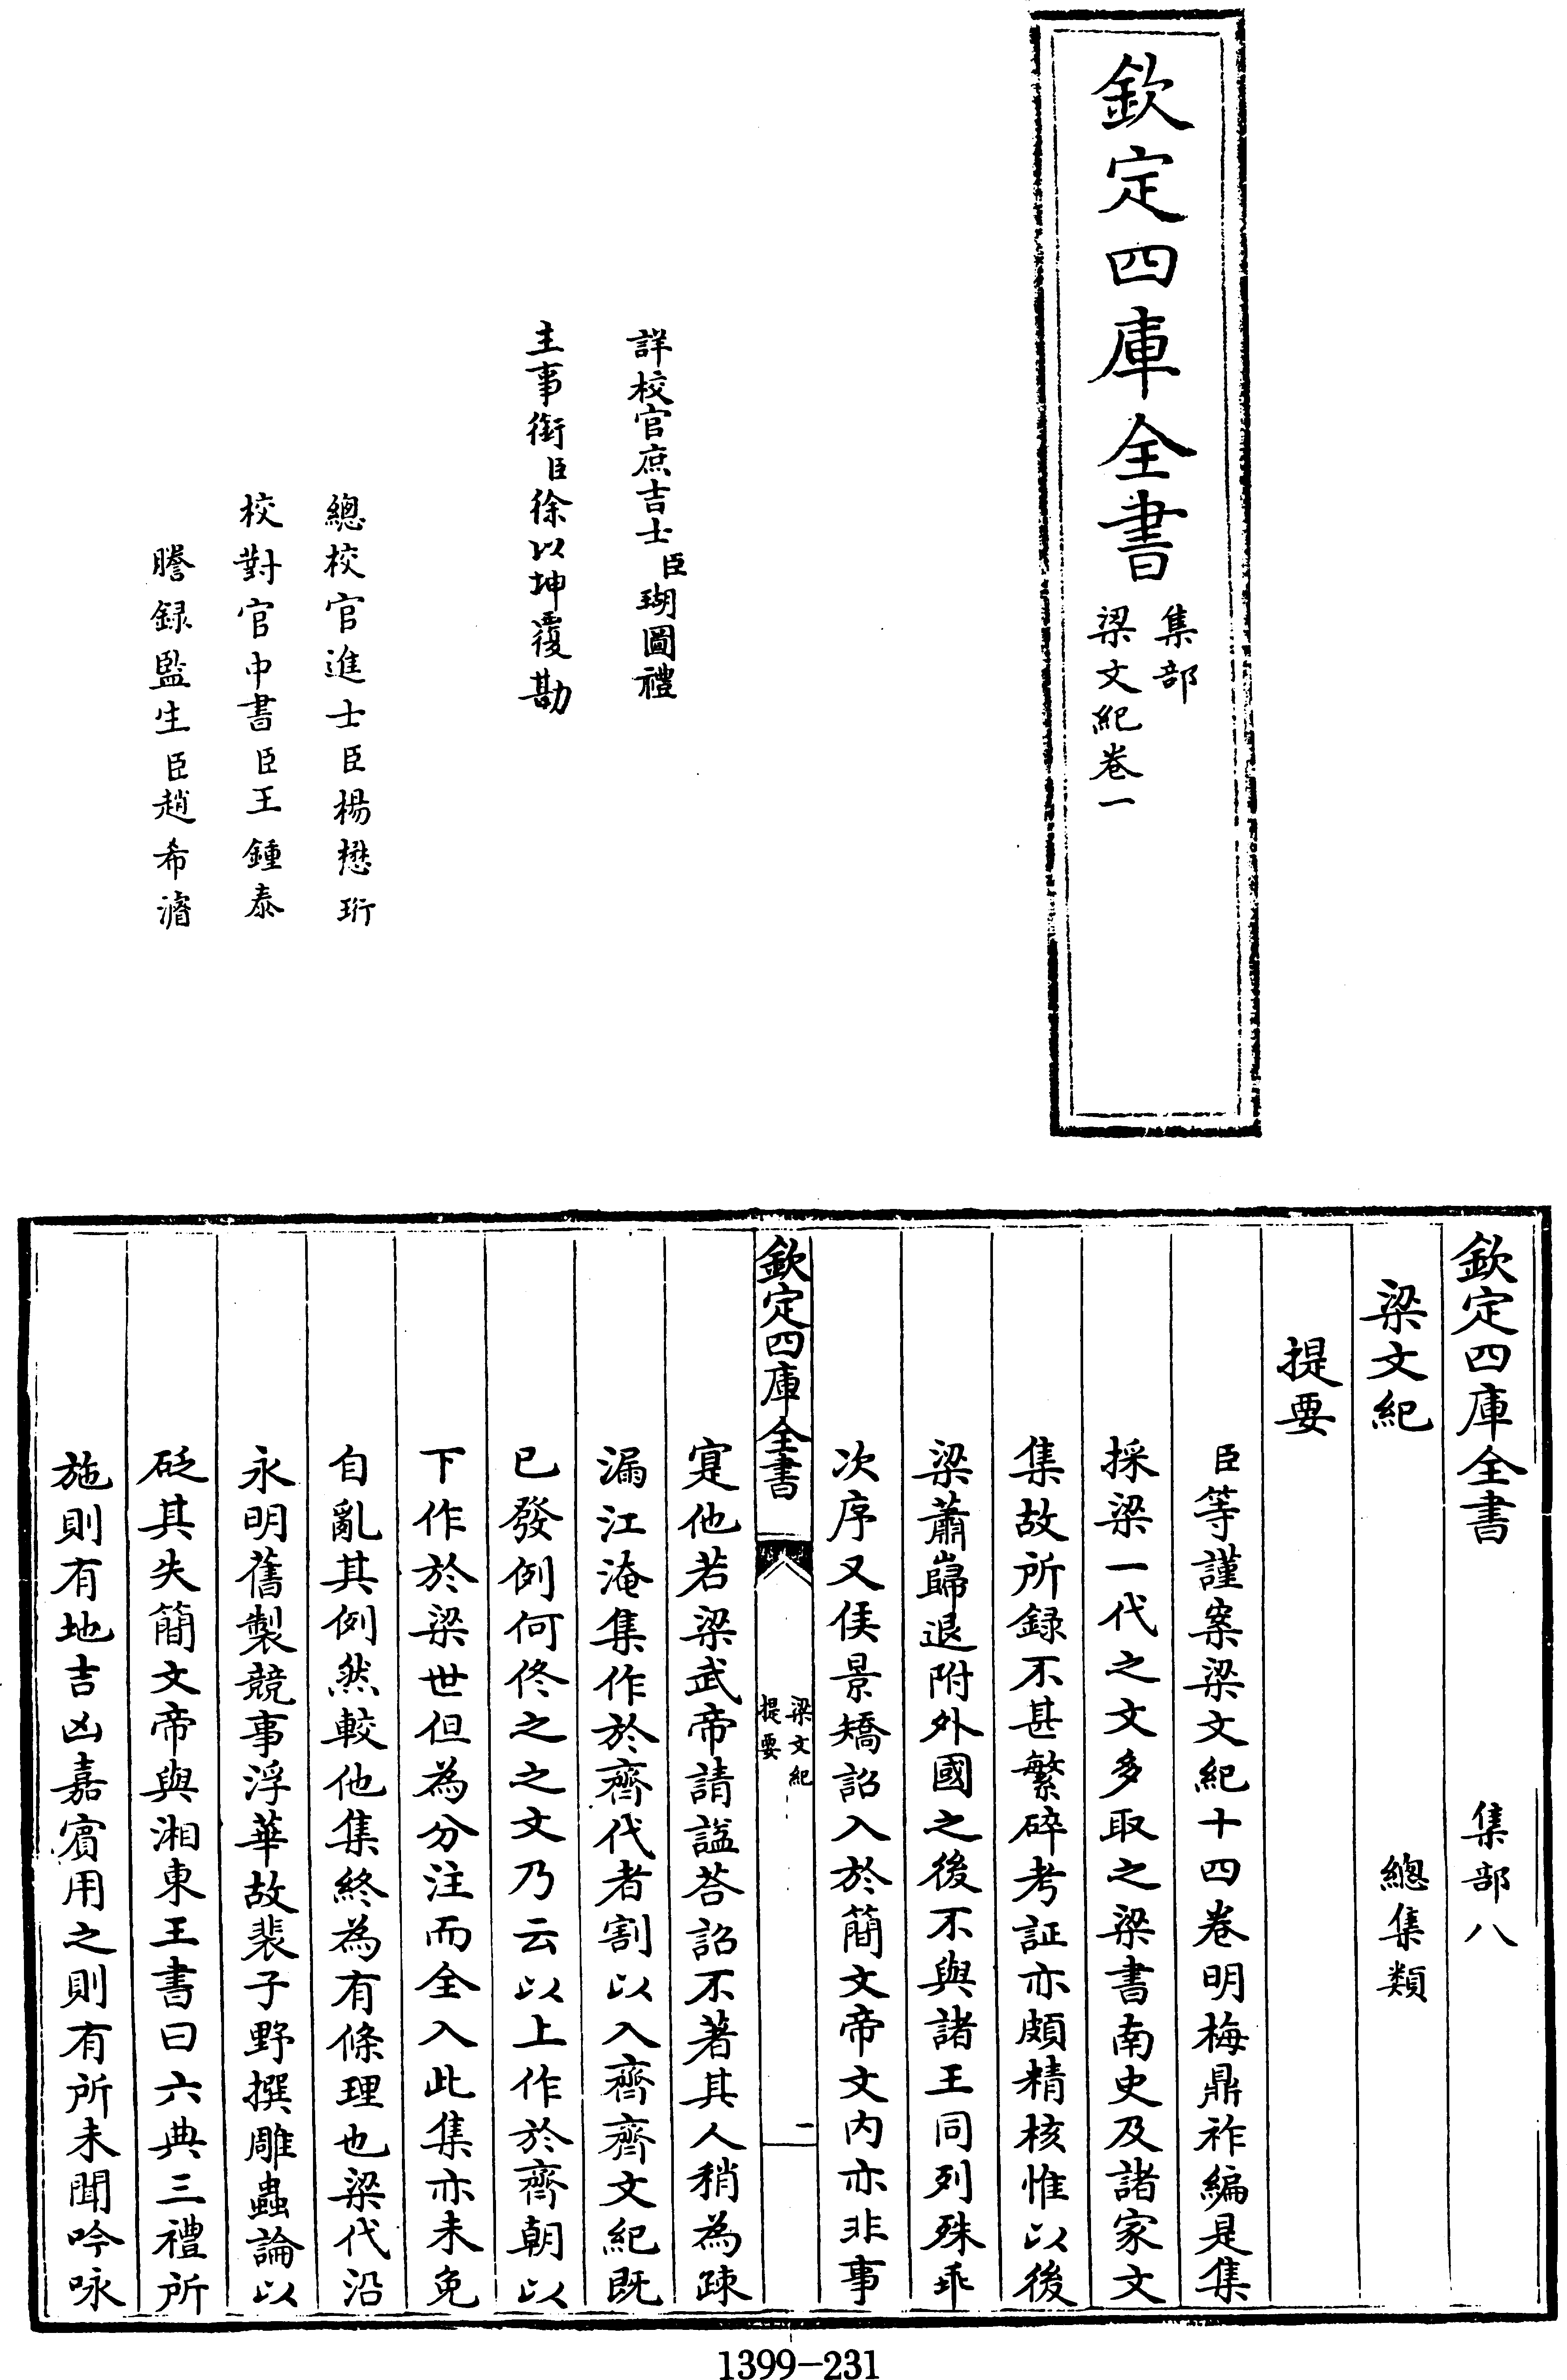 欽定四庫全書
集部
梁文紀卷一
詳校官庶吉士臣瑚圖禮
主事銜臣徐以坤覆勘
總校官進士臣楊懋珩
校對官中書臣王鍾泰
謄録監生臣趙希濬
欽定四庫全書 集部八
梁文紀 總集類
提要
臣等謹案梁文紀十四卷明梅鼎祚編是集
採梁一代之文多取之梁書南史及諸家文
集故所録不甚繁碎考証亦頗精核惟以後
梁蕭巋退附外國之後不與諸王同列殊乖
次序又侯景矯詔入於簡文帝文内亦非事
欽定四庫全書
梁文紀
提要
一
寔他若梁武帝請謚荅詔不著其人稍為疎
漏江淹集作於齊代者割以入齊齊文紀既
已發例何佟之之文乃云以上作於齊朝以
下作於梁世但為分注而全入此集亦未免
自亂其例然較他集終為有條理也梁代沿
永明舊製競事浮華故裴子野撰雕蟲論以
砭其失簡文帝與湘東王書曰六典三禮所
施則有地吉凶嘉賓用之則有所未聞吟咏
1399-231